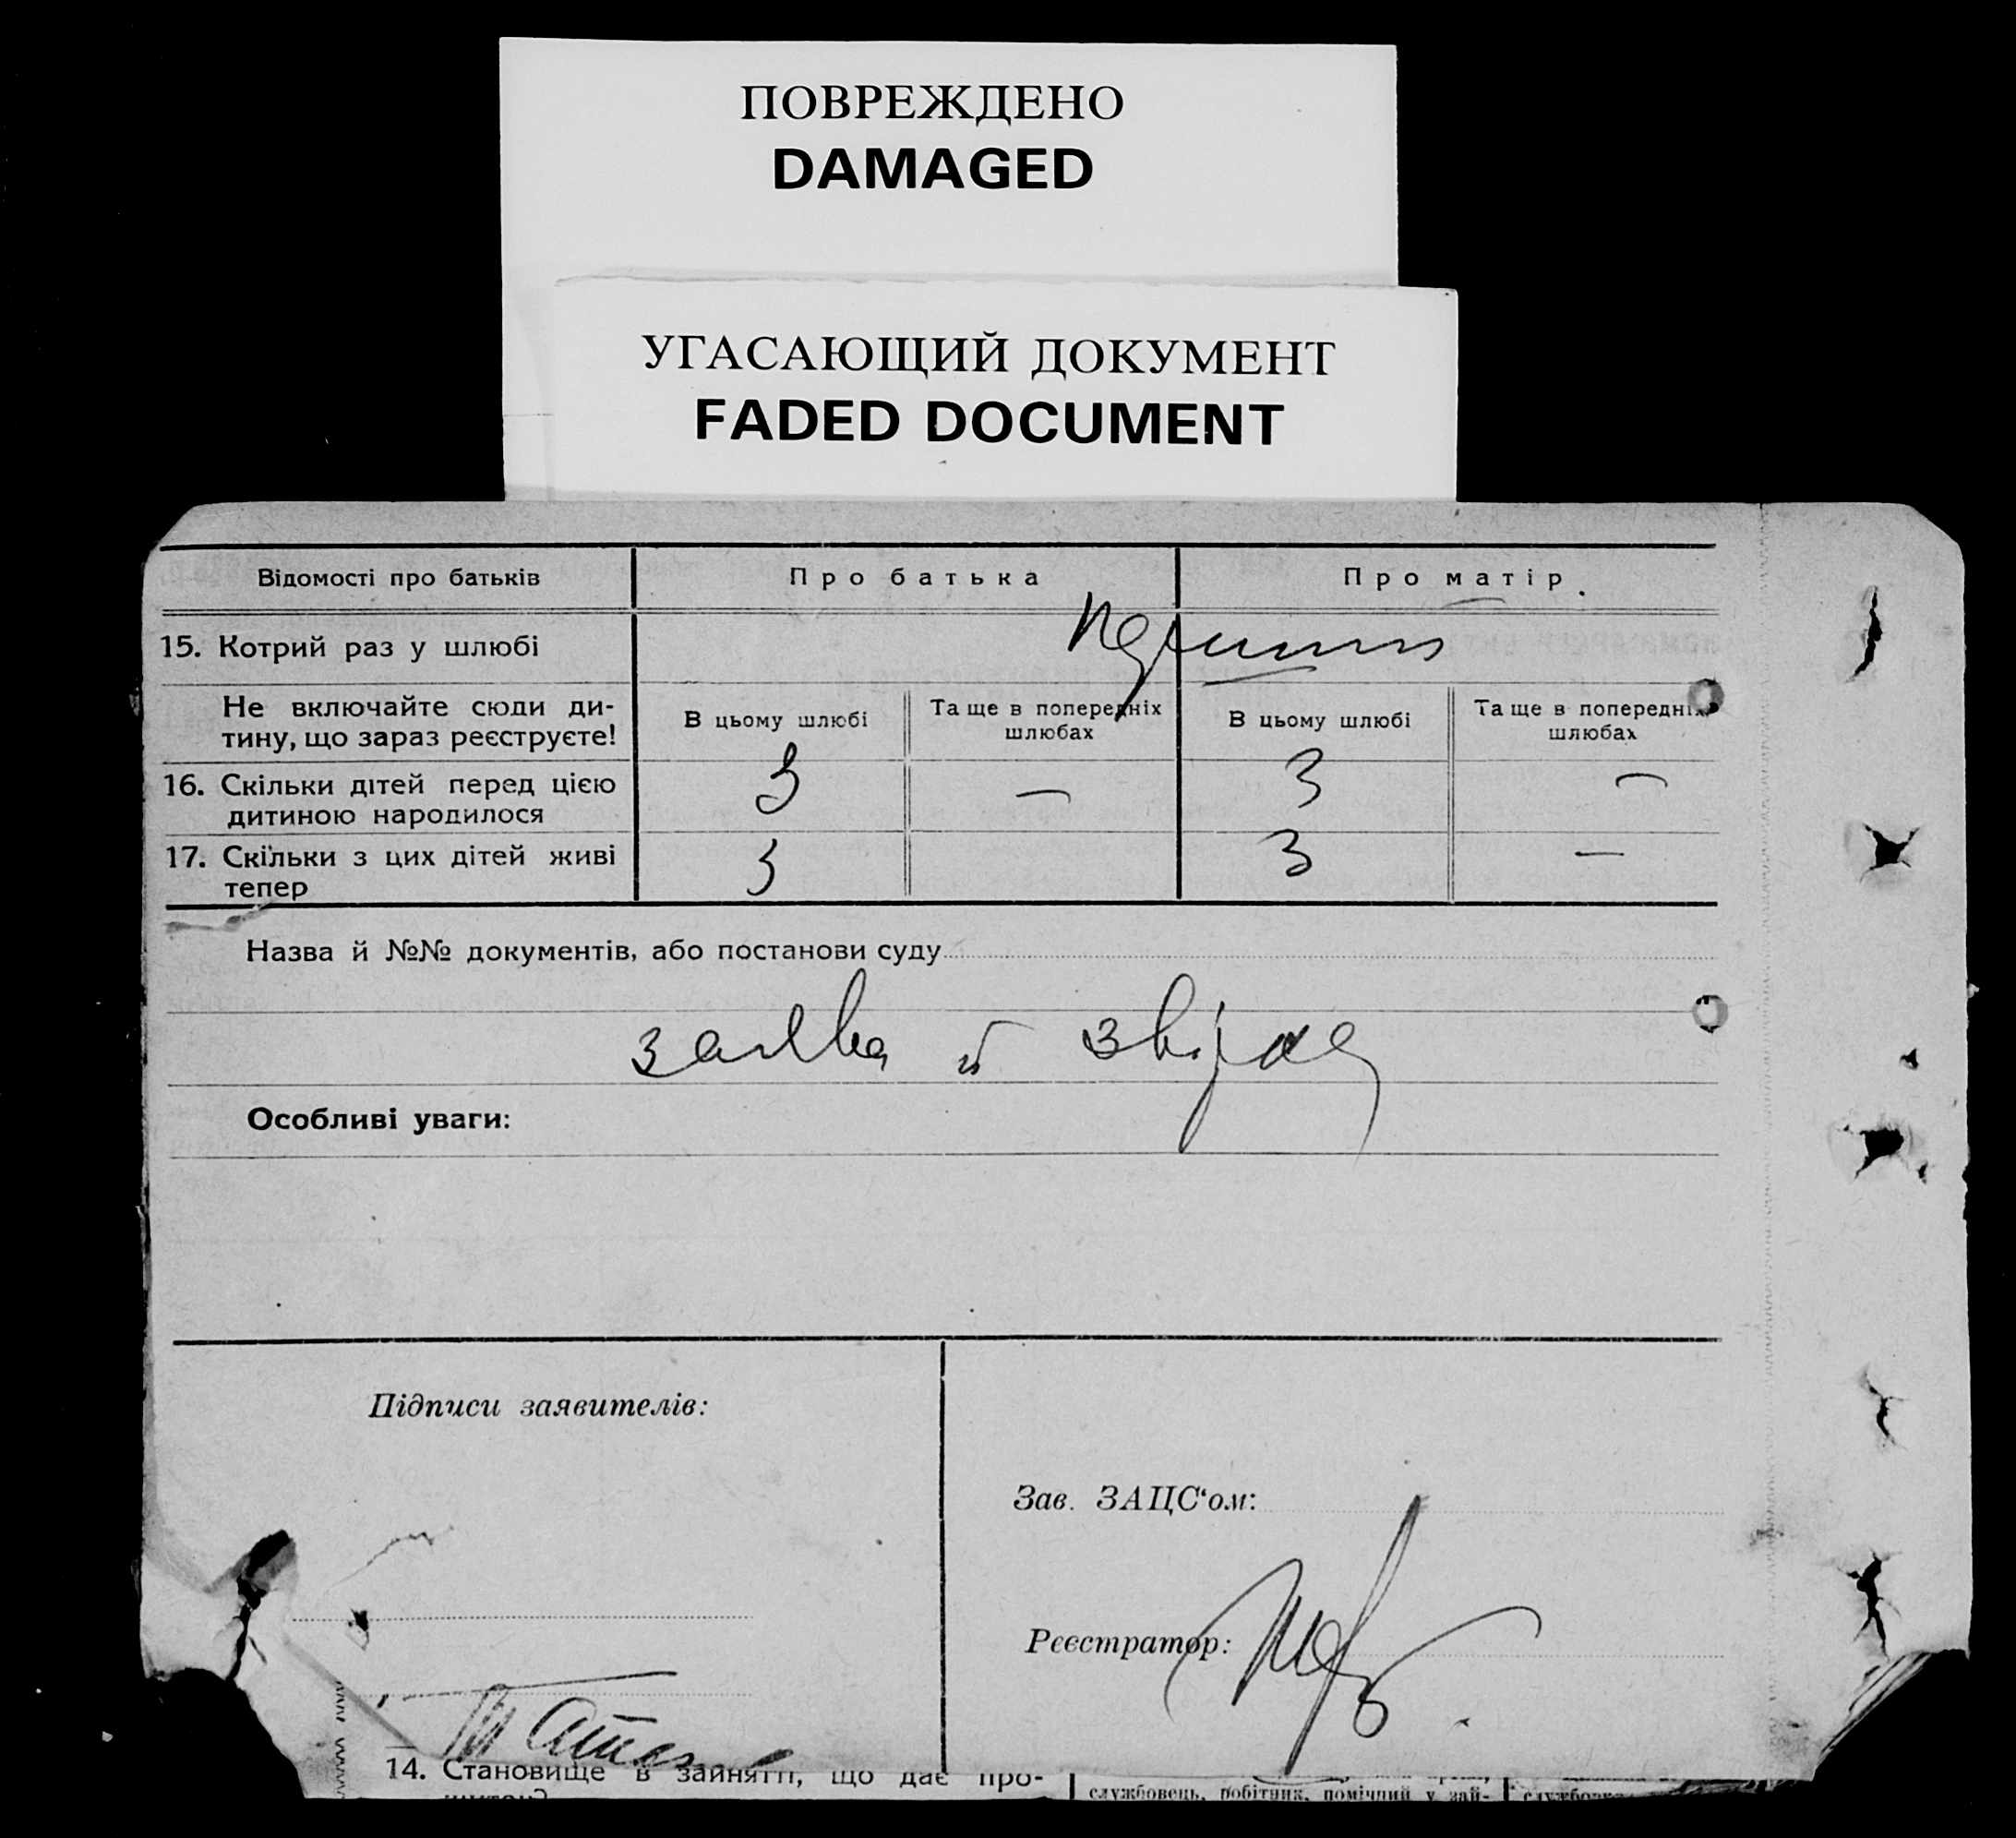 ПОВРЕЖДЕНО
DAMAGED
УГАСАЮЩИЙ ДОКУМЕНТ
FADED DOCUMENT
Відомості про батьків Про батька Про матір
15. Котрий раз у шлюбі
Не включайте сюди ди-
тину, що зараз реєструєте!
В цьому шлюбі
Та ще в попередніх
шлюбах
В цьому шлюбі
Та ще в попередніх
шлюбах
16. Скільки дітей перед цією
дитиною народилося
3 — 3 —
17. Скільки з цих дітей живі
тепер
3 3 —
Назва й №№ документів, або постанови суду
заява й
Особливі уваги:
Підписи заявителів:
Зав. ЗАЦС‘ом:
Реєстратор:
14. Становище в зайнятті, що дає про-
службовець, робітник, помічний у зай-